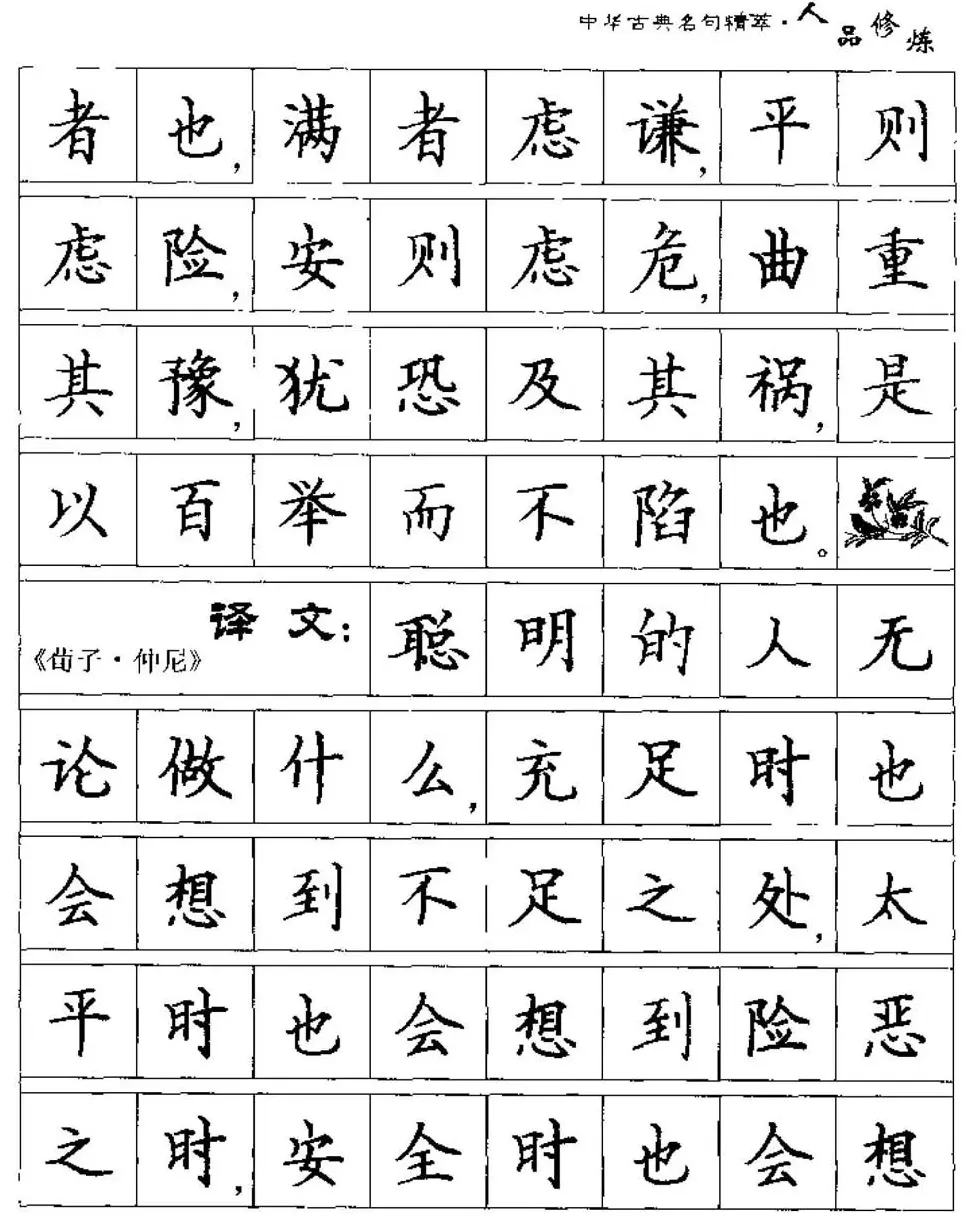 中华古典名句精萃·人品修炼
者也，满者虑谦，平则
虑险，安则虑危，曲重
其豫，犹恐及其祸，是
以百举而不陷也。
《荀子·仲尼》
译文：聪明的人无
论做什么，充足时也
会想到不足之处，太
平时也会想到险恶
之时，安全时也会想